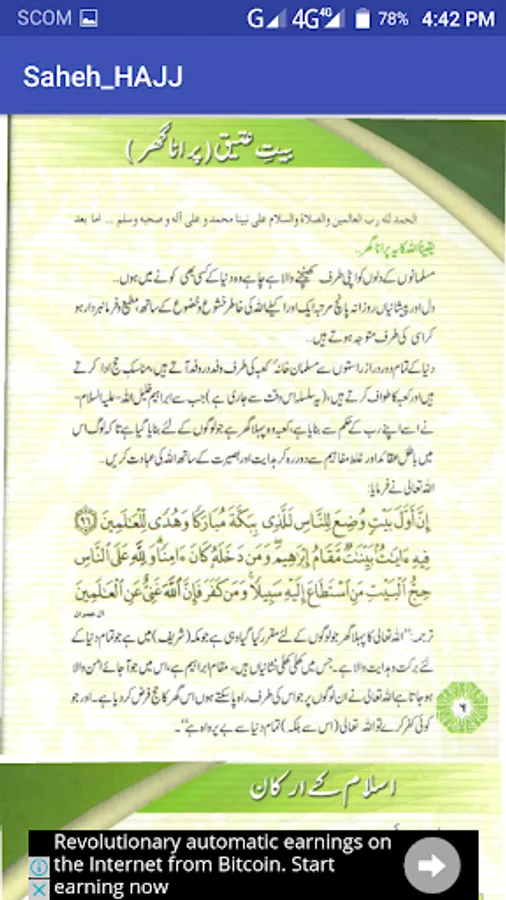 SCOM G 4G 4G 78% 4:42 PM
Saheh_HAJJ
بیتِ عتیق (پرانا گھر)
الحمد لله رب العالمين والصلاة والسلام على نبينا محمد و على آله و صحبه وسلم .. اما بعد
یقیناً اللہ کا یہ پرانا گھر..
مسلمانوں کے دلوں کو اپنی طرف کھینچنے والا ہے چاہے وہ دنیا کے کسی بھی کونے میں ہوں..
دل اور پیشانیاں روزانہ پانچ مرتبہ ایک اور اکیلے اللہ کی خاطر خشوع و خضوع کے ساتھ، مطیع و فرمانبردار ہو
کر اسی کی طرف متوجہ ہوتے ہیں..
دنیا کے تمام دور دراز راستوں سے مسلمان خانہ کعبہ کی طرف وفد در وفد آتے ہیں، مناسک حج ادا کرتے
ہیں اور کعبہ کا طواف کرتے ہیں، (یہ سلسلہ اس وقت سے جاری ہے) جب سے ابراہیم خلیل اللہ -علیہ السلام-
نے اسے اپنے رب کے حکم سے بنایا ہے، کعبہ وہ پہلا گھر ہے جو لوگوں کے لئے بنایا گیا ہے تاکہ لوگ اس
میں باطل عقائد اور غلط مفاہیم سے دور رہ کر ہدایت اور بصیرت کے ساتھ اللہ کی عبادت کریں..
اللہ تعالی نے فرمایا:
إِنَّ أَوَّلَ بَيْتٍ وُضِعَ لِلنَّاسِ لَلَّذِى بِبَكَّةَ مُبَارَكًا وَهُدًى لِّلْعَٰلَمِينَ ٩٦
فِيهِ ءَايَٰتٌۢ بَيِّنَٰتٌ مَّقَامُ إِبْرَٰهِيمَ وَمَن دَخَلَهُۥ كَانَ ءَامِنًا وَلِلَّهِ عَلَى ٱلنَّاسِ
حِجُّ ٱلْبَيْتِ مَنِ ٱسْتَطَاعَ إِلَيْهِ سَبِيلًا وَمَن كَفَرَ فَإِنَّ ٱللَّهَ غَنِىٌّ عَنِ ٱلْعَٰلَمِينَ
ترجمہ: "اللہ تعالی کا پہلا گھر جو لوگوں کے لئے مقرر کیا گیا وہی ہے جو مکہ (شریف) میں ہے جو تمام دنیا کے
لئے برکت و ہدایت والا ہے۔ جس میں کھلی کھلی نشانیاں ہیں، مقام ابراہیم ہے، اس میں جو آجائے امن والا
ہو جاتا ہے اللہ تعالی نے ان لوگوں پر جو اس کی طرف راہ پا سکتے ہوں اس گھر کا حج فرض کر دیا ہے۔ اور جو
کوئی کفر کرے تو اللہ تعالی (اس سے بلکہ) تمام دنیا سے بے پرواہ ہے"۔
٦
اسلام کے ارکان
Revolutionary automatic earnings on
the Internet from Bitcoin. Start
earning now